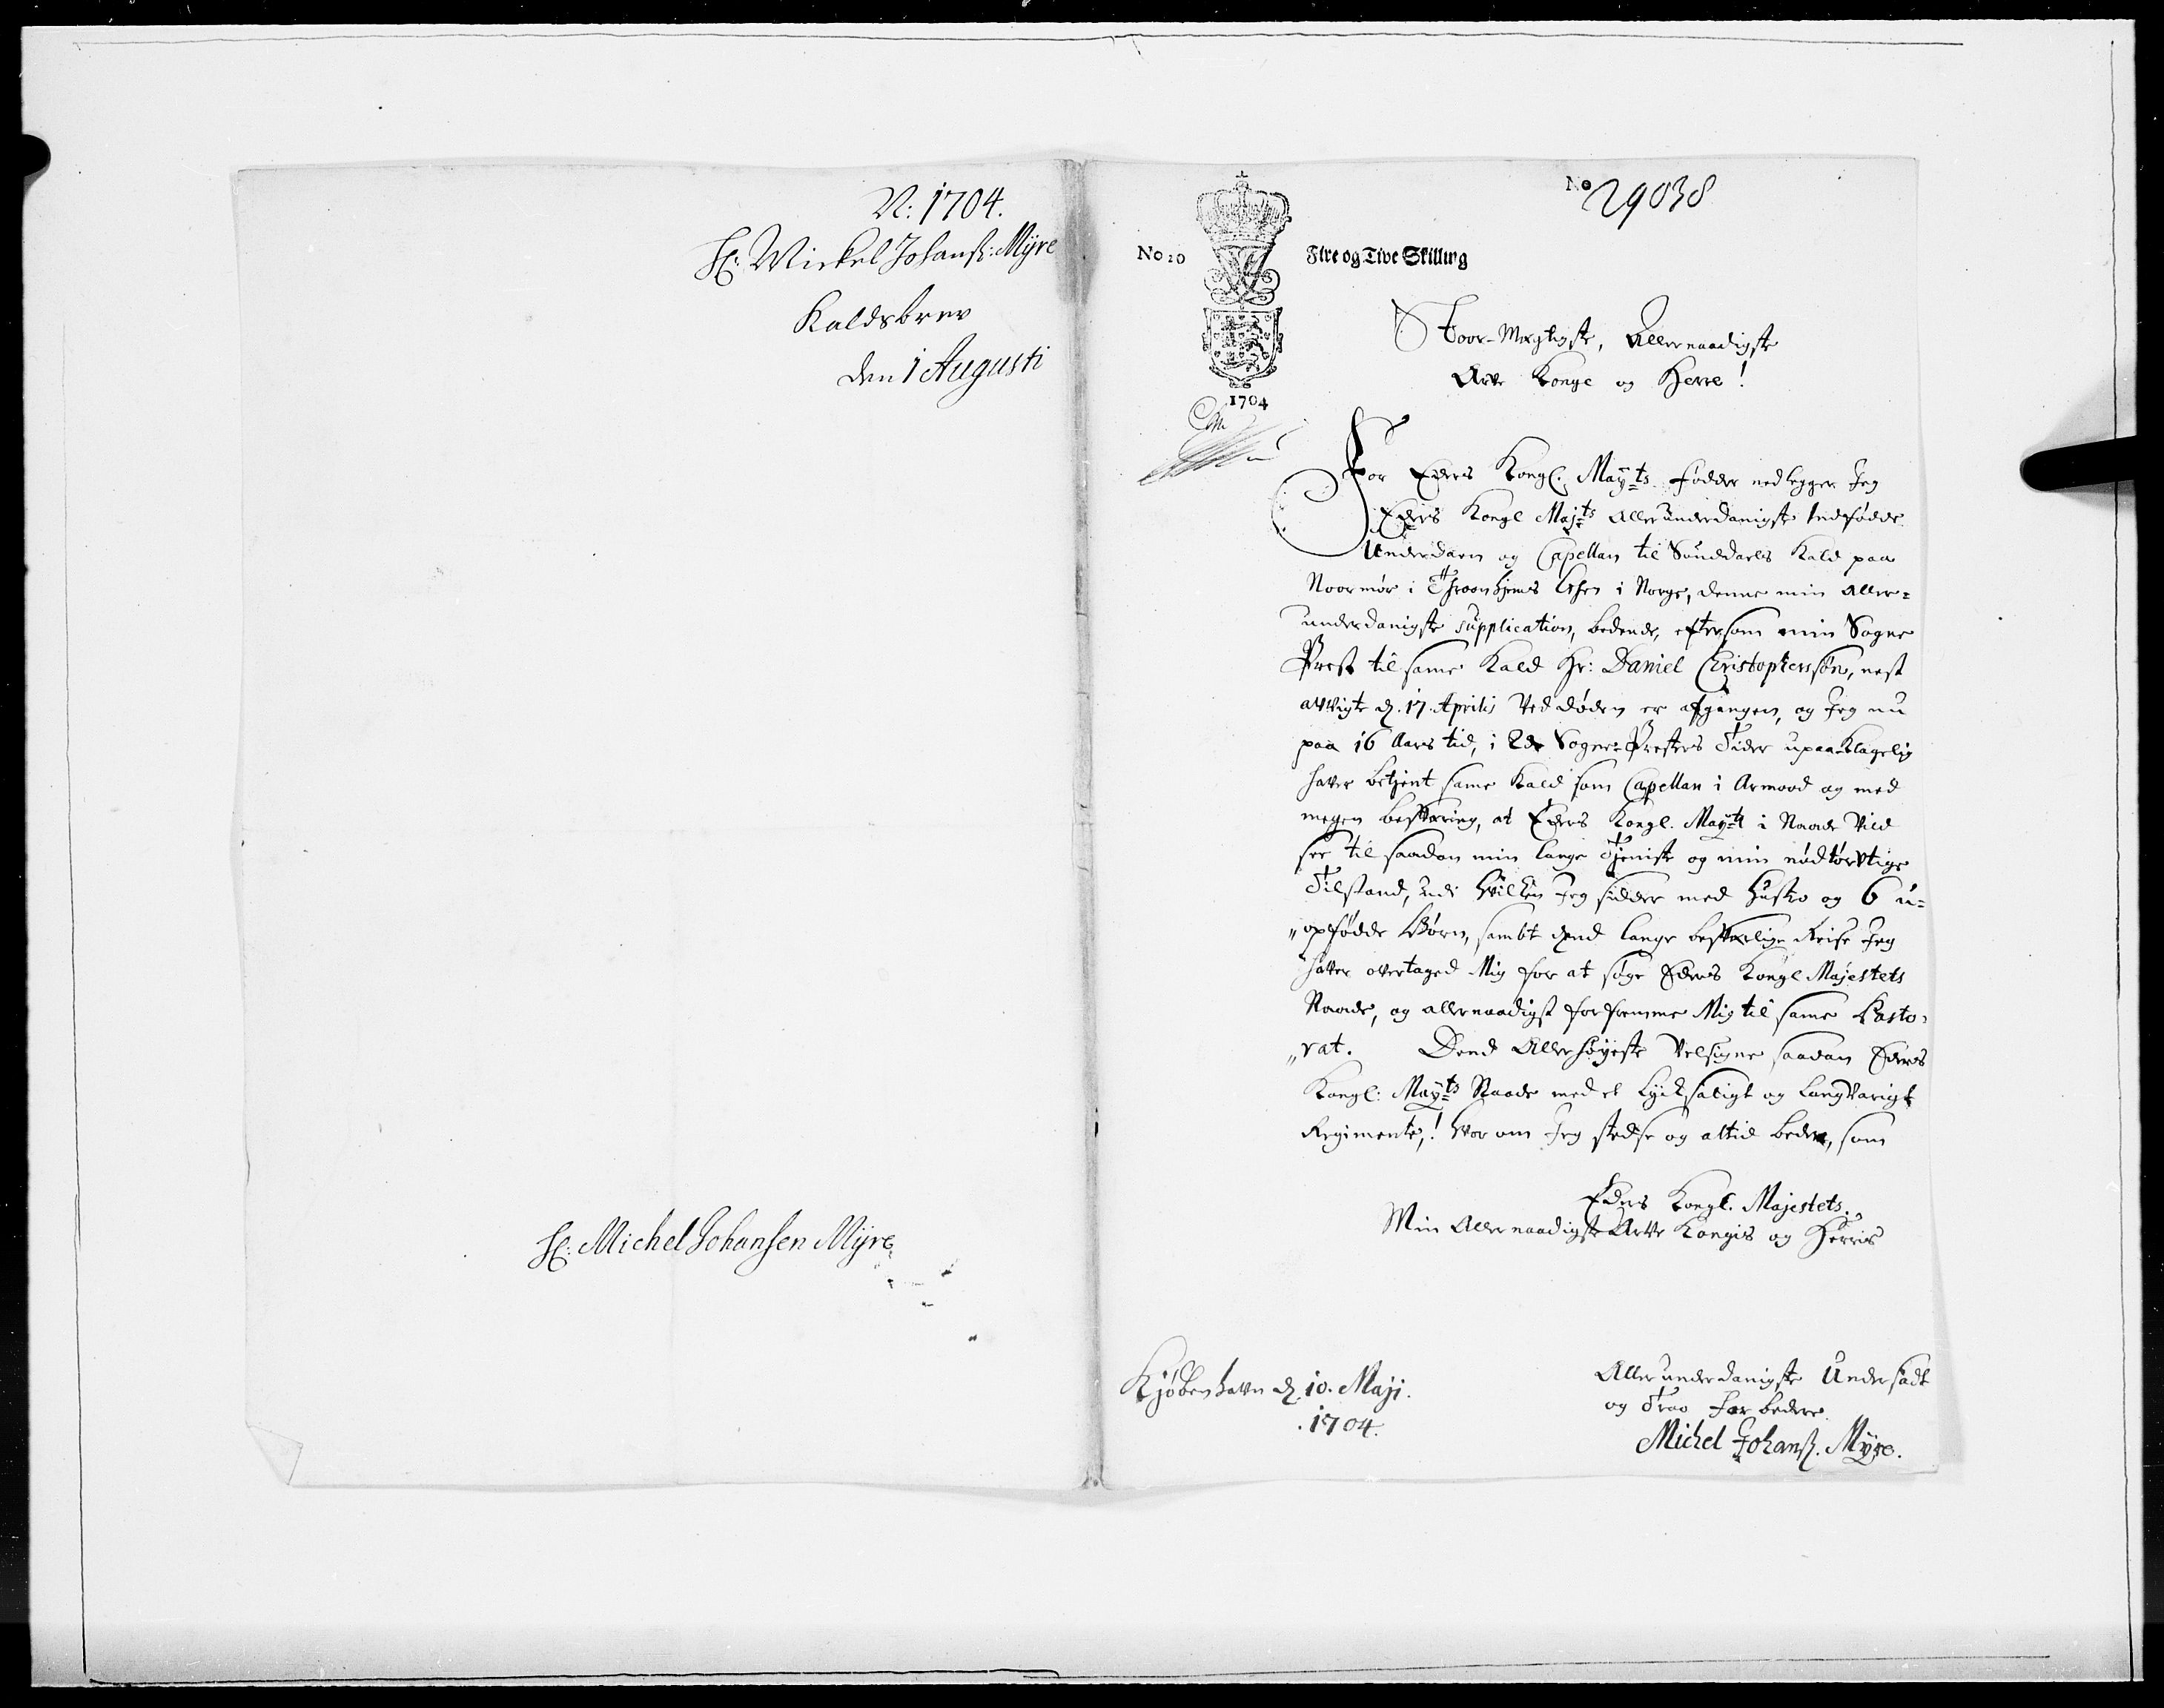 N: 1704.
Hr: Mickel Johanss: Myre
Kaldsbrev
den 1 Augusti
Hr: Michel Johansen Myre
No 29038
No 20
Fire og Tive Skilling
1704
Stoor-Mægtigste, Allernaadigste
Arve Konge og Herre!
For Eders Kongl. Mayts. fødder nedlegger Jeg
Eders Kongl Majts Allerunderdanigste Indfødde
Underdaen og Capellan til Sunddaels Kald paa
Noormør i Throonhjems Lehn i Norge, denne min Aller=
underdanigste supplication, bedende, eftersom min Sogne
Prest til same Kald Hr: Daniel Christopherssøn, nest
afvigte d. 17. Aprilis ved døden er afgangen, og Jeg nu
paa 16 Aars tid, i 2de Sogne-Presters Tider upaa-Klagelig
hafver betjent same Kald som Capellan i Armood og med
megen besværing, at Eders Kongl. Mayts i Naade vild
see til saadan min lange Tjeniste og min nødtørvtige
Tilstand, udi hvilken Jeg sidder med Hustro og 6 u=
„opfødde Børn, sambt dend lange besværlige Reise Jeg
hafver overtaged Mig for at søge Eders Kongl Majestets
Naade, og allernaadigst forfremme Mig til same Pasto=
„rat. Dend Allerhøyeste Velsigne saadan Eders
Kongl: Mayts Naade med et Lycksaligt og Langvarigt
Regimente,! hvor om Jeg stedse og altid beder, som
Eders Kongl. Majestets.
Min Allernaadigste Arve Kongis og Herris
Kjøbenhavn d. 10. Maji.
1704.
Allerunderdanigste Undersaat
og Troo forbedere
Michel Johanss. Myre.